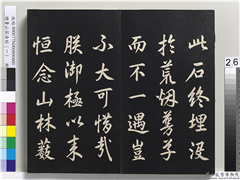 此石終埋没
於荒烟蔓草
而不一遇豈
不大可惜哉
朕御極以来
恒念山林薮
2.6